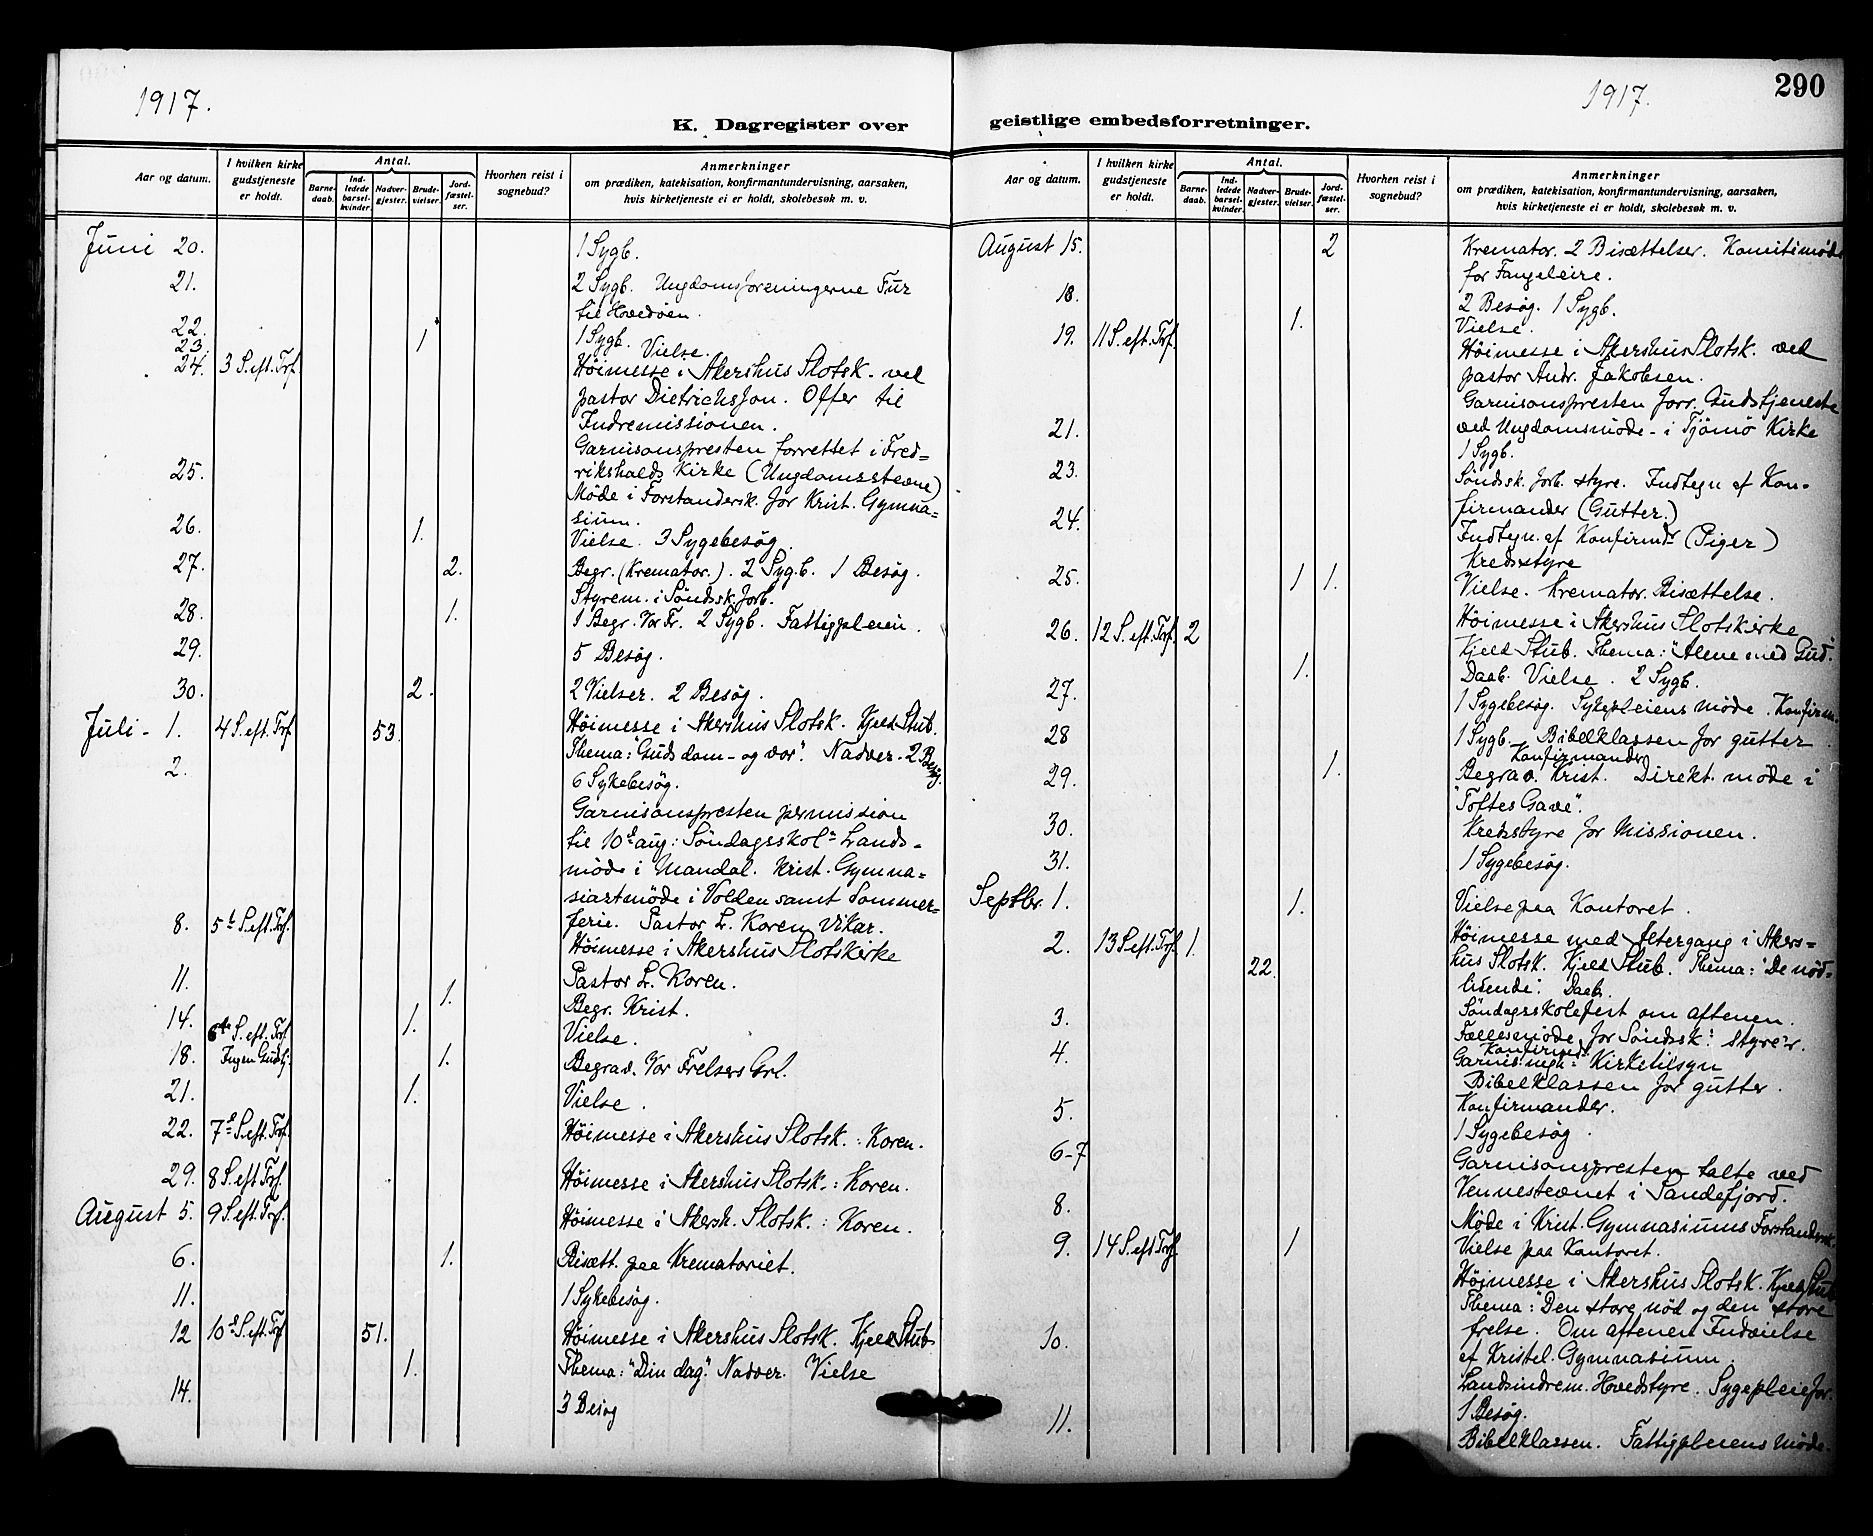 1917.
K. Dagregister over
Aar og datum.
I hvilken kirke gudstjeneste er holdt.
Antal.
Barne-daab.
Ind-ledede barsel-kvinder.
Nadver-gjester.
Brude-vielser.
Jord-fæstel-ser.
Hvorhen reist i sognebud?
Anmerkninger
om prædiken, katekisation, konfirmantundervisning, aarsaken,
hvis kirketjeneste ei er holdt, skolebesøk m. v.
Juni 20. 1 Sygb.
21. 2 Sygb. Ungdomsforeningerne Tur
til Hovedøen.
22. 1 Sygb.
23. 1 Vielse.
24. 3 S. eft. Trf. Höimesse i Akershus Slotsk. ved
pastor Dietrichson. Offer til
Indremissionen.
Garnisonspresten forrettet i Fred=
rikshalds Kirke (Ungdomsstevne)
25. Møde i Forstandersk. for Krist. Gymna=
sium.
26. 1. Vielse. 3 Sygebesøg.
27. 2. Begr. (Kremator.). 2 Syg.b. 1 Besøg.
Styrem. i Söndsk. forb.
28. 1. 1 Begr. Vor Fr. 2 Sygb. Fattigpleien.
29. 5 Besøg.
30. 2. 2 Vielser. 2 Besøg.
Juli - 1. 4 S. eft. Trf. 53. Höimesse i Akershus Slotsk. Kjeld Stub.
Thema: "Guds dom - og vor". Nadver. 2 Besøg.
2. 6 Sykebesøg.
Garnisonspresten permission
til 10d aug: Söndagsskol- Lands=
møde i Mandal. Krist. Gymna=
siastmöde i Volden samt Sommer=
ferie. Pastor L. Koren Vikar.
8. 5t S. eft. Trf. Höimesse i Akershus Slotskirke
Pastor L. Koren.
11. 1. Begr. Krist.
14. 1. Vielse.
6te S. eft. Trf. Ingen Gudstj.
18. 1. Begrav. Vor Frelsers Grl.
21. 1. Vielse.
22. 7d S. eft. Trf. Höimesse i Akershus Slotsk. : Koren.
29. 8 S. eft Trf. Höimesse i Akershus Slotsk. : Koren.
August 5. 9 S. eft. Trf. Höimesse i Akersh. Slotsk. : Koren.
6. 1. Bisætt. paa Krematoriet.
11. 1 Sykebesøg.
12 10d S. eft. Trf 51. Höimesse i Akershus Slotsk. Kjeld Stub.
1. Thema: "Din dag". Nadver. Vielse
14. 3 Besøg
1917.
290
geistlige embedsforretninger.
Aar og datum.
I hvilken kirke gudstjeneste er holdt.
Antal.
Barne-daab.
Ind-ledede barsel-kvinder.
Nadver-gjester.
Brude-vielser.
Jord-fæstel-ser.
Hvorhen reist i sognebud?
Anmerkninger
om prædiken, katekisation, konfirmantundervisning, aarsaken,
hvis kirketjeneste ei er holdt, skolebesøk m. v.
August 15. 2 Kremator. 2 Bisættelser. Komitémøde
for Fangeleire.
18. 2 Besøg. 1 Sygb.
1. Vielse.
19. 11 S. eft. Trf. Höimesse i Akershus Slotsk. ved
pastor Andr. Jakobsen.
Garnisonspresten forr. Gudstjeneste
ved Ungdomsmöde - i Tjömö Kirke
21. 1 Sygb.
23. Söndsk. forb. styre. Indtegn. af Kon=
firmander (Gutter.)
24. Indtegn. af Konfirmdr (Piger)
Kredsstyre
25. 1 1. Vielse. Kremator. Bisættelse.
26. 12 S. eft. Trf. 2 Höimesse i Akershus Slotskirke
Kjeld Stub. Thema: "Alene med Gud".
1. Daab. Vielse. 2 Sygb.
27. 1 Sygebesøg. Sykepleiens møde. Konfirm.
28 1 Sygb. Bibelklassen for gutter.
Konfirmander
29. 1. Begrav. Krist. Direkt. møde i
"Toftes Gave".
30. Kredsstyre for Missionen.
31. 1 Sygebesøg.
Septbr. 1. 1. Vielse paa Kontoret.
2. 13 S. eft. Trf. 1. Höimesse med Altergang i Akers=
22. hus Slotsk. Kjeld Stub. Thema: "De nöd=
lidende". Daab.
Søndagsskolefest om aftenen.
3. Fællesmøde for Söndsk. styrer.
Konfirmd.
4. Kirketilsyn
Bibelklassen for gutter.
5. Konfirmander.
1 Sygebesøg.
6-7 Garnisonspresten talte ved
Vennestevnet i Sandefjord.
8. Møde i Krist. Gymnasiums Forstandersk.
1 Vielse paa Kontoret.
9. 14 S. eft Trf. Höimesse i Akershus Slotsk. Kjeld Stub
Thema: "Den store nöd og den store
frelse. Om aftenen Indvielse
af Kristel. Gymnasium.
10. Landsindrem. Hovedstyre. Sygepleiefor.
1 Besøg.
11. Bibelklassen. Fattigpleiens Møde.